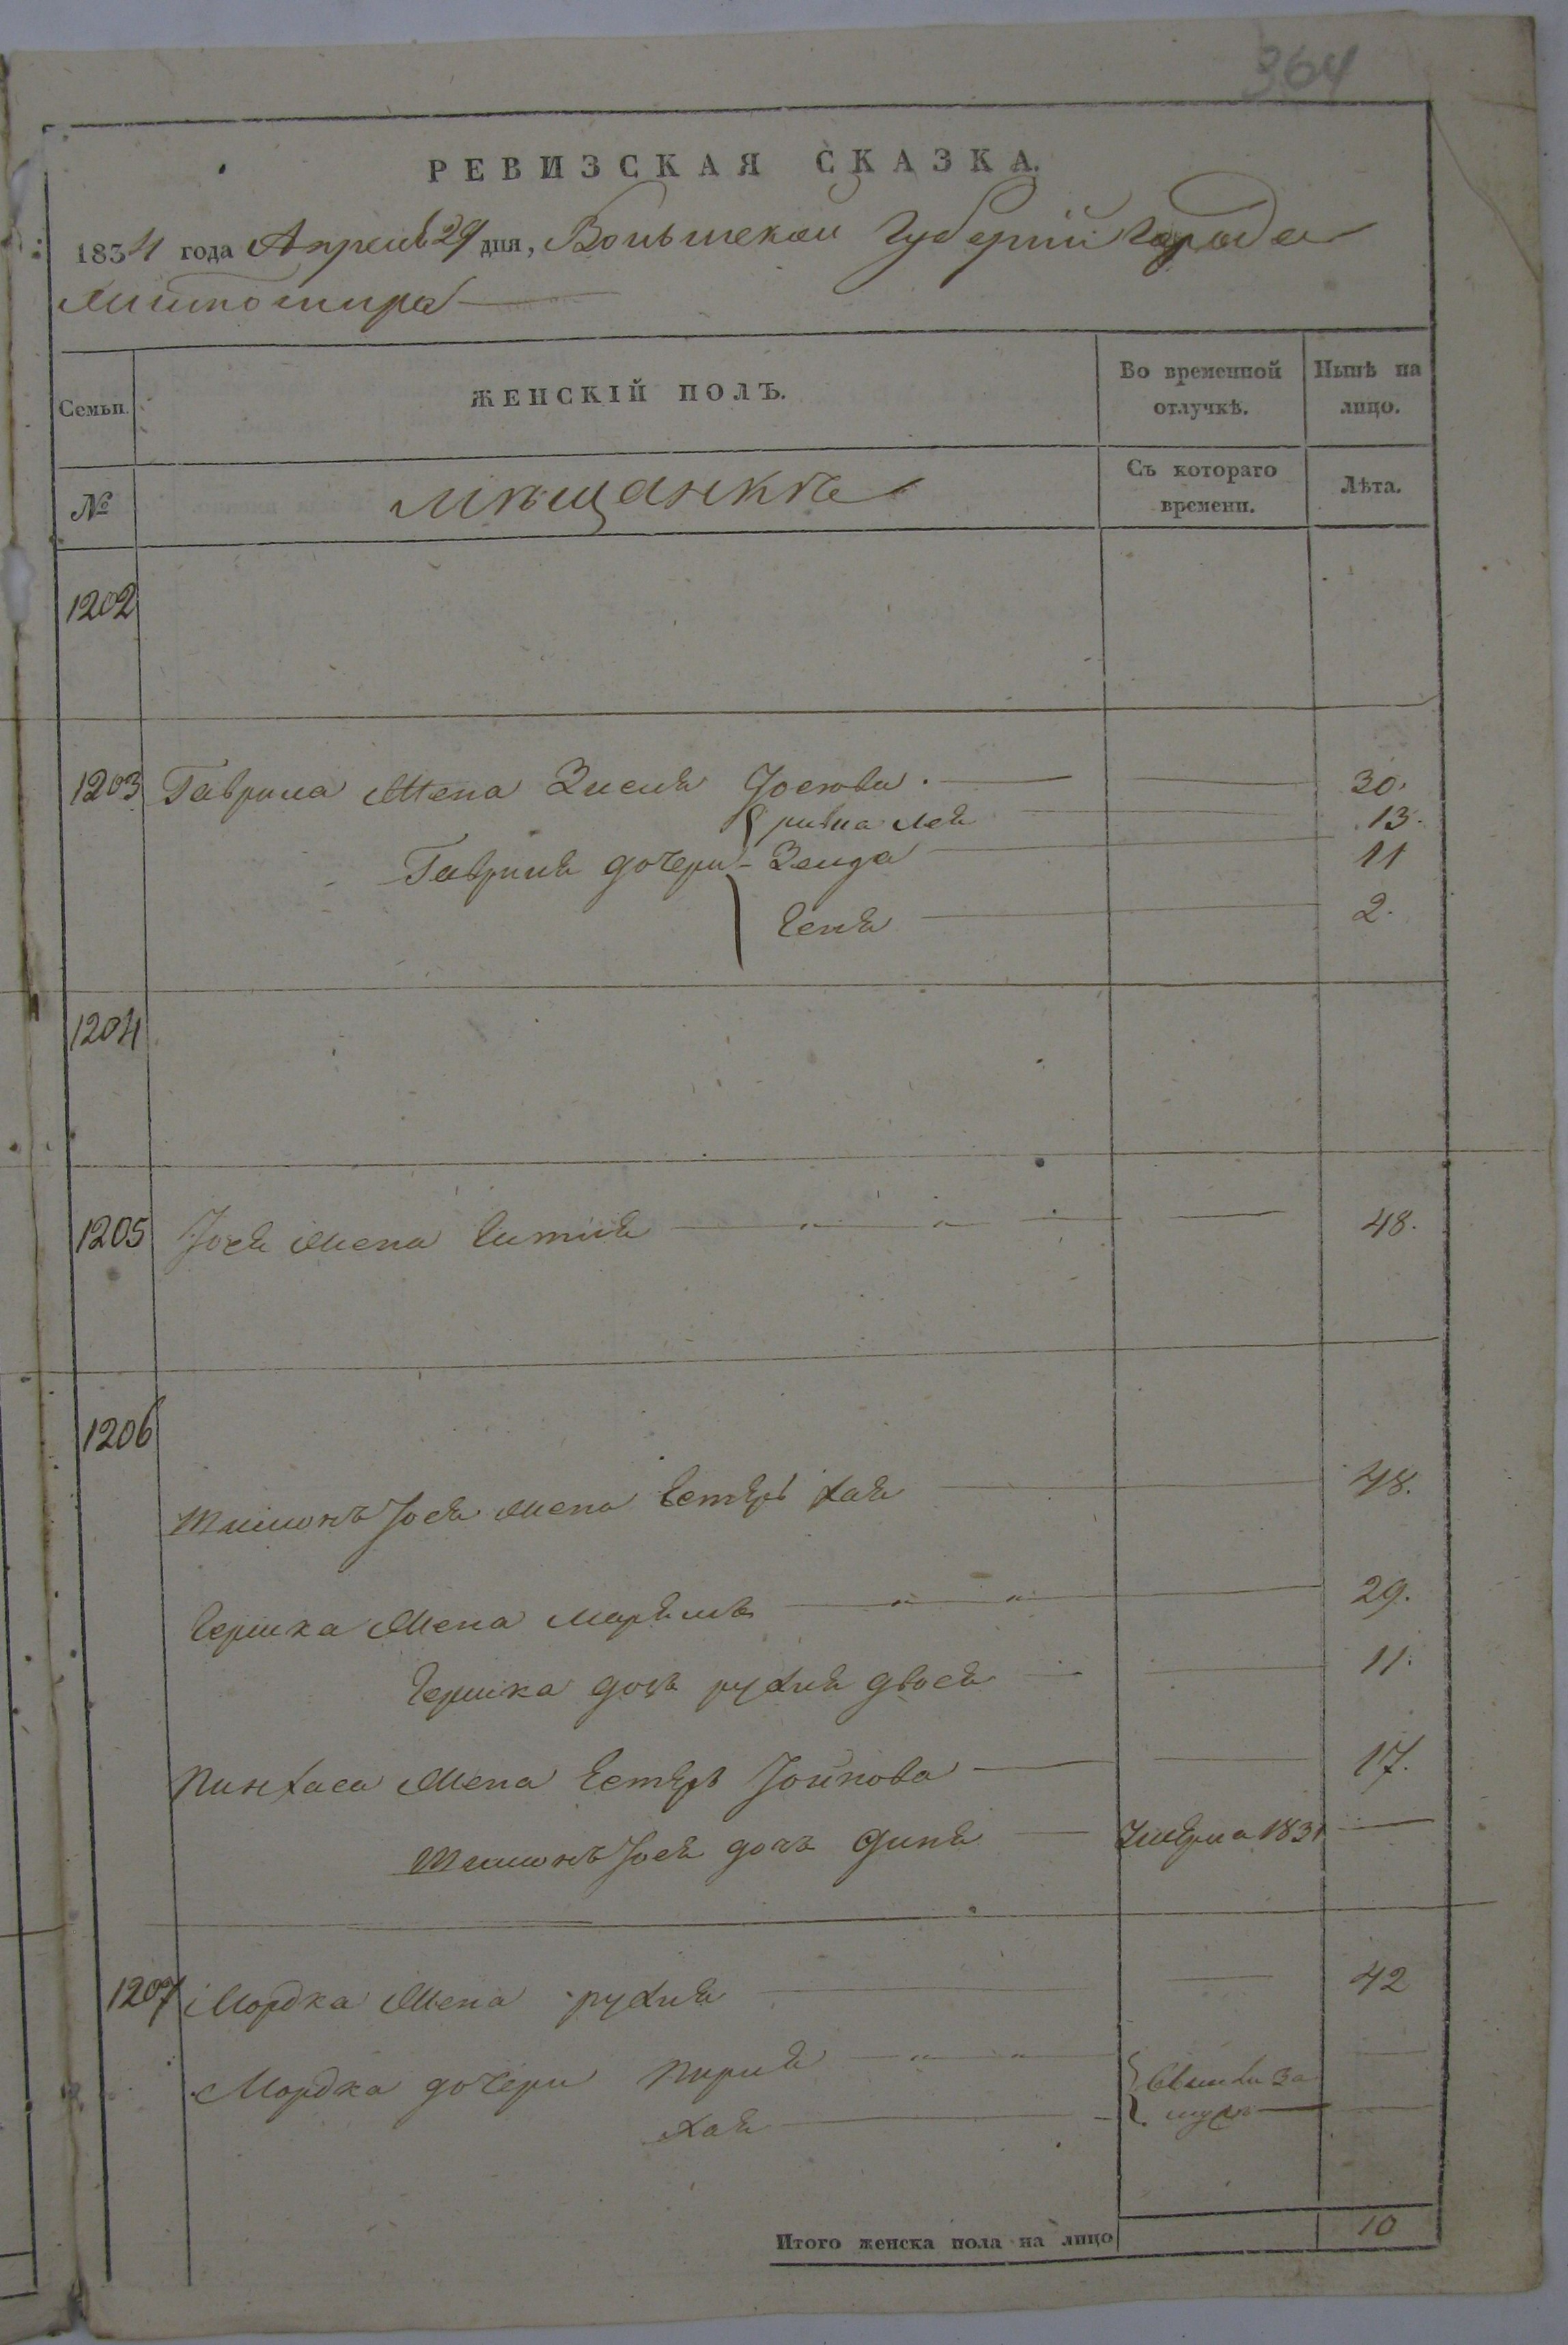 364
РЕВИЗСКАЯ СКАЗКА.
1834 года Апреля 29 дня, Волынской Губернїи Города
Житомира
Семьи. ЖЕНСКІЙ ПОЛЪ. Во временной отлучкѣ. Нынѣ на лицо.
№ мѣщанкѣ Съ котораго времени. Лѣта.
1202
1203 Гаврила Жена Зисля Іосіова 30.
Ривка Лея 13.
Гаврила дочери Зелда 11
Геня 2.
1204
1205 Іося Жена 48.
1206
Шлiомъ Іося Жена Естеръ Хая 48.
Гершка Жена Маріямъ 29.
Гершка дочь Рухля Двося 11.
Пинхаса Жена Естеръ Іойнова 17.
Шлiомъ Іося дочь Диня Умерла 1831
1207 Мордка Жена Рухля 42
Мордка дочери Перля
Хая
Итого женска пола на лицо 10